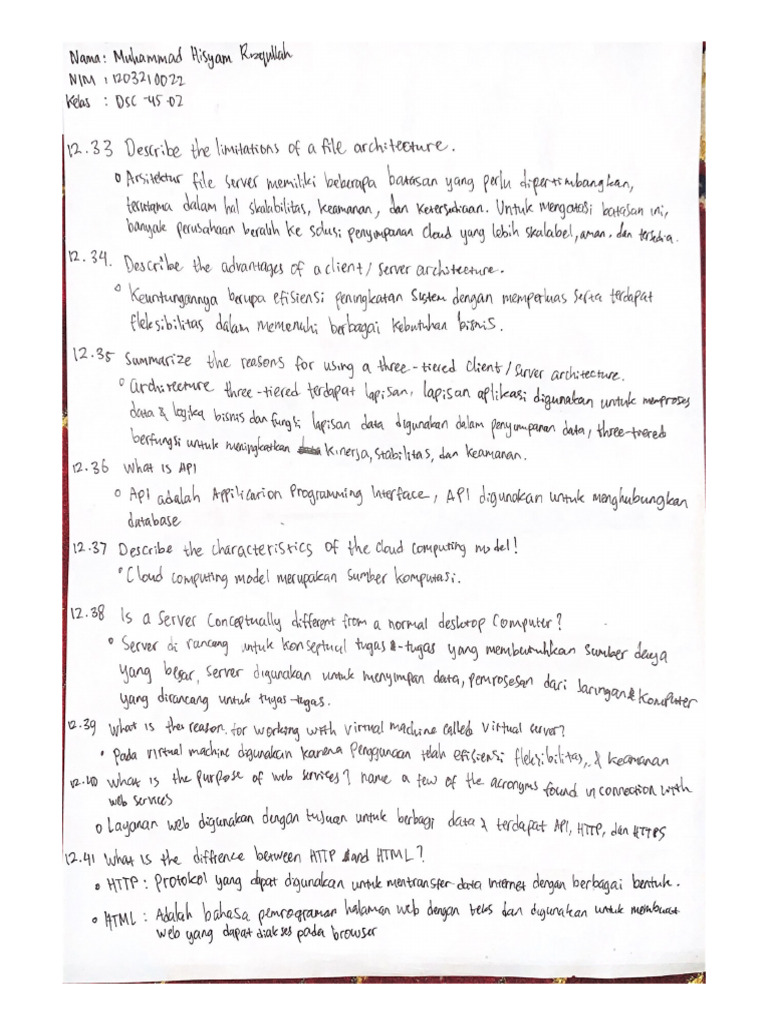 Nama: Muhammad Hisyam Rizqullah
NIM : 1203210022
Kelas : DSC-45-02
12.33 Describe the limitations of a file architecture.
o Arsitektur file server memiliki beberapa batasan yang perlu dipertimbangkan,
terutama dalam hal skalabilitas, keamanan, dan ketersediaan. Untuk mengatasi batasan ini,
banyak perusahaan beralih ke solusi penyimpanan cloud yang lebih skalabel, aman. dan tersedia.
12.34. Describe the advantages of a client/server architecture.
o Keuntungannya berupa efisiensi peningkatan sistem dengan memperluas serta terdapat
fleksibilitas dalam memenuhi berbagai kebutuhan bisnis.
12.35 Summarize the reasons for using a three-tiered client/server architecture.
• architecture three-tiered terdapat lapisan, lapisan aplikasi digunakan untuk memproses
data & logika bisnis dan fungsi lapisan data digunakan dalam penyimpanan data, three-tiered
berfungsi untuk meningkatkan kinerja, stabilitas, dan keamanan.
12.36 What is API
o API adalah Appilicarion Programming Interface, API digunakan untuk menghubungkan
database
12.37 Describe the characteristics of the cloud computing model!
• Cloud computing model merupakan sumber komputasi.
12.38 Is a server conceptually different from a normal desktop computer?
• Server di rancang untuk konseptual tugas-tugas yang membutuhkan sumber daya
yang besar, server digunakan untuk menyimpan data, pemrosesan dari Jaringan & Komputer
yang dirancang untuk tugas-tugas.
12.39 What is the reason for working with virtual machine called virtual server?
• Pada virtual machine digunakan karena Penggunaan telah efisiensi fleksibilitas, & keamanan
12.40 What is the purpose of web services? name a few of the acronyms found in connection with
web services
o Layanan web digunakan dengan tujuan untuk berbagi data & terdapat API, HTTP, dan HTTPS
12.41 What is the diffrence between HTTP and HTML?
• HTTP : Protokol yang dapat digunakan untuk mentransfer data internet dengan berbagai bentuk.
• HTML : Adalah bahasa pemrograman halaman web dengan teks dan digunakan untuk membuat
web yang dapat diakses pada browser